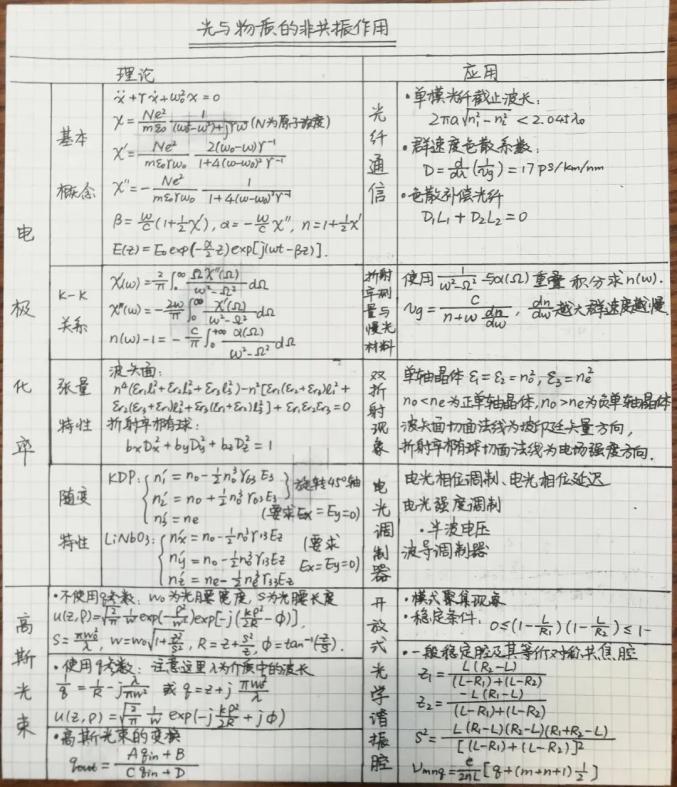 光与物质的非共振作用
理论
应用
电极化率
基本概念
ẍ + γẋ + ω₀²x = 0
χ = Ne²/(mε₀) · 1/((ω₀²-ω²)+jγω) (N为原子密度)
χ' = Ne²/(mε₀γω₀) · 2(ω₀-ω)γ⁻¹/(1+4(ω-ω₀)²γ⁻¹)
χ'' = -Ne²/(mε₀γω₀) · 1/(1+4(ω-ω₀)²γ⁻¹)
β = ω/c(1+½χ'), α = -ω/c χ'', n = 1+½χ'
E(z) = E₀exp(-α/2 z)exp[j(ωt-βz)].
光纤通信
·单模光纤截止波长:
2πa√(n₁²-n₂²) < 2.045λ₀
·群速度色散系数:
D = d/dλ(1/vg) = 17 ps/km/nm
·色散补偿光纤
D₁L₁ + D₂L₂ = 0
K-K关系
χ'(ω) = 2/π ∫₀^∞ Ωχ''(Ω)/(ω²-Ω²) dΩ
χ''(ω) = -2ω/π ∫₀^∞ χ'(Ω)/(ω²-Ω²) dΩ
n(ω)-1 = -c/π ∫₀^+∞ α(Ω)/(ω²-Ω²) dΩ
折射率测量与慢光材料
使用 1/(ω²-Ω²) 与α(Ω)重叠积分求n(ω).
vg = c/(n+ω dn/dω), dn/dω 越大群速度越慢
张量特性
波矢面:
n⁴(εr₁l₁²+εr₂l₂²+εr₃l₃²)-n²[εr₁(εr₂+εr₃)l₁²+
εr₂(εr₃+εr₁)l₂²+εr₃(εr₁+εr₂)l₃²]+εr₁εr₂εr₃=0
折射率椭球:
bxDx²+byDy²+bzDz²=1
双折射现象
单轴晶体 ε₁=ε₂=n₀², ε₃=ne²
n₀<ne为正单轴晶体, n₀>ne为负单轴晶体
波矢面切面法线为坡印廷矢量方向,
折射率椭球切面法线为电场强度方向.
随变特性
KDP: { n₁' = n₀-½n₀³γ₆₃E₃
n₂' = n₀+½n₀³γ₆₃E₃
n₃' = ne } 旋转45°轴
(要求Ex=Ey=0)
LiNbO₃: { n'x = n₀-½n₀³γ₁₃Ez
n'y = n₀-½n₀³γ₁₃Ez
n'z = ne-½ne³γ₃₃Ez
(要求
Ex=Ey=0)
电光调制器
电光相位调制、电光相位延迟
电光强度调制
·半波电压
波导调制器
高斯光束
·不使用q参数: w₀为光腰宽度, S为光腰长度
u(z,ρ)=√(2/π) 1/w exp(-ρ²/w²)exp[-j(kρ²/2R-φ)],
S=πw₀²/λ, w=w₀√(1+z²/S²), R=z+S²/z, φ=tan⁻¹(z/S).
·使用q参数: 注意这里λ为介质中的波长
1/q = 1/R - jλ/(πw²) 或 q=z+j πw₀²/λ
u(z,ρ)=√(2/π) 1/w exp(-j kρ²/2q + jφ)
·高斯光束的变换
qout = (Aqin+B)/(Cqin+D)
开放式光学谐振腔
·模式聚集现象
·稳定条件: 0≤(1-L/R₁)(1-L/R₂)≤1-
·一般稳定腔及其等价对称共焦腔
z₁ = L(R₂-L)/((L-R₁)+(L-R₂))
z₂ = -L(R₁-L)/((L-R₁)+(L-R₂))
S² = L(R₁-L)(R₂-L)(R₁+R₂-L)/[(L-R₁)+(L-R₂)]²
νmnq = c/2nL [q+(m+n+1)½]